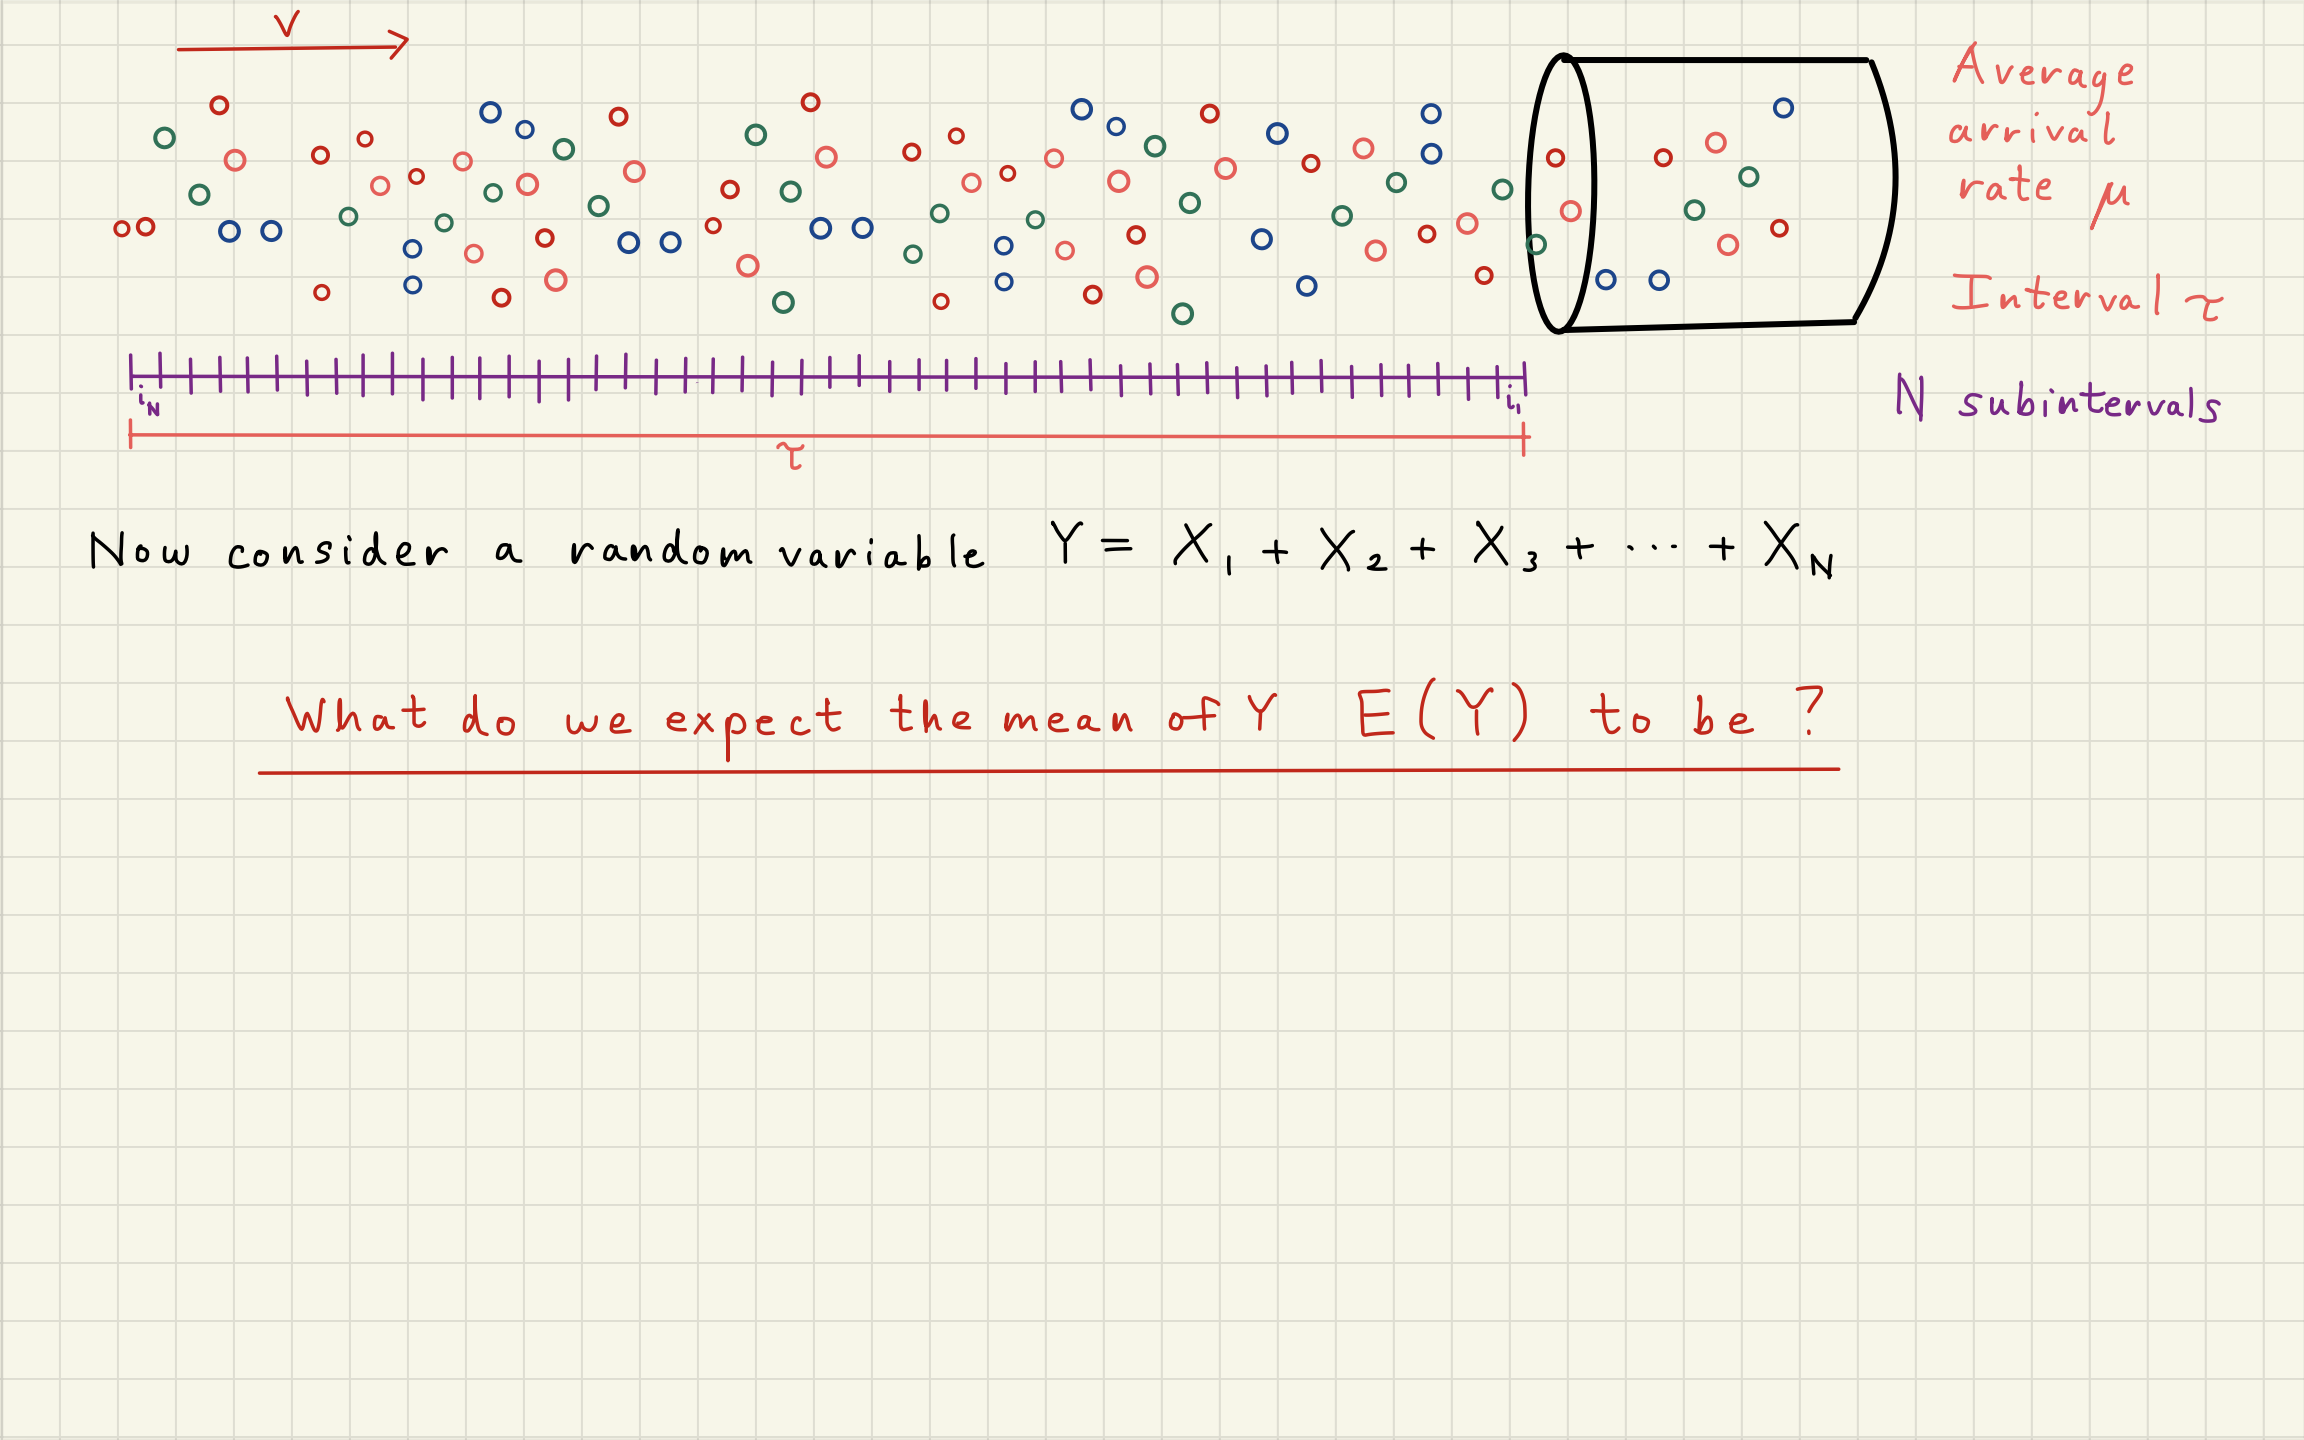 V
Average
arrival
rate μ
Interval τ
i_N
i_1
N subintervals
τ
Now consider a random variable Y = X_1 + X_2 + X_3 + ... + X_N
What do we expect the mean of Y E(Y) to be ?